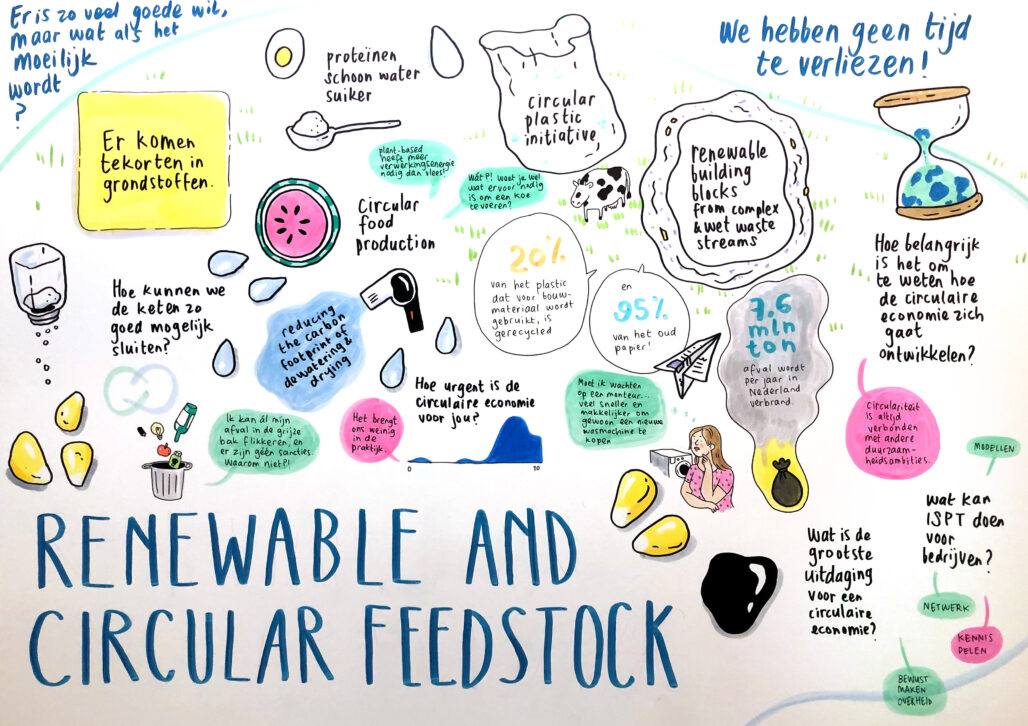 Er is zo veel goede wil,
maar wat als het
moeilijk
wordt
?
We hebben geen tijd
te verliezen!
proteïnen
schoon water
suiker
circular
plastic
initiative
Er komen
tekorten in
grondstoffen.
plant-based
heeft meer
verwerkingsenergie
nodig dan vlees!
Wát?! Weet je wel
wat er voor nodig
is om een koe
te voeren?
renewable
building
blocks
from complex
& wet waste
streams
Circular
food
production
20%
van het plastic
dat voor bouw-
materiaal wordt
gebruikt, is
gerecycled
en
95%
van het oud
papier!
7.6
mln
ton
afval wordt
per jaar in
Nederland
verbrand.
Hoe belangrijk
is het om
te weten hoe
de circulaire
economie zich
gaat
ontwikkelen?
Hoe kunnen we
de keten zo
goed mogelijk
sluiten?
reducing
the carbon
footprint of
dewatering &
drying
Hoe urgent is de
circulaire economie
voor jou?
0
10
Ik kan ál mijn
afval in de grijze
bak flikkeren, en
er zijn géén sancties.
Waarom niet?!
Het brengt
ons weinig
in de
praktijk.
Moet ik wachten
op een monteur...
veel sneller en
makkelijker om
gewoon een nieuwe
wasmachine te
kopen
Circulariteit
is altijd
verbonden
met andere
duurzaam-
heidsambities.
MODELLEN
Wat kan
ISPT doen
voor
bedrijven?
NETWERK
KENNIS
DELEN
BEWUST
MAKEN
OVERHEID
Wat is de
grootste
uitdaging
voor een
circulaire
economie?
RENEWABLE AND
CIRCULAR FEEDSTOCK